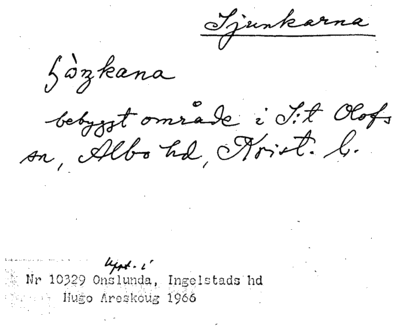 Sjunkarna
ɧòzkana
bebyggt område i S:t Olofs
sn, Albo hd, Krist. l.
Uppt. i
Nr 10329 Onslunda, Ingelstads hd
Hugo Areskoug 1966